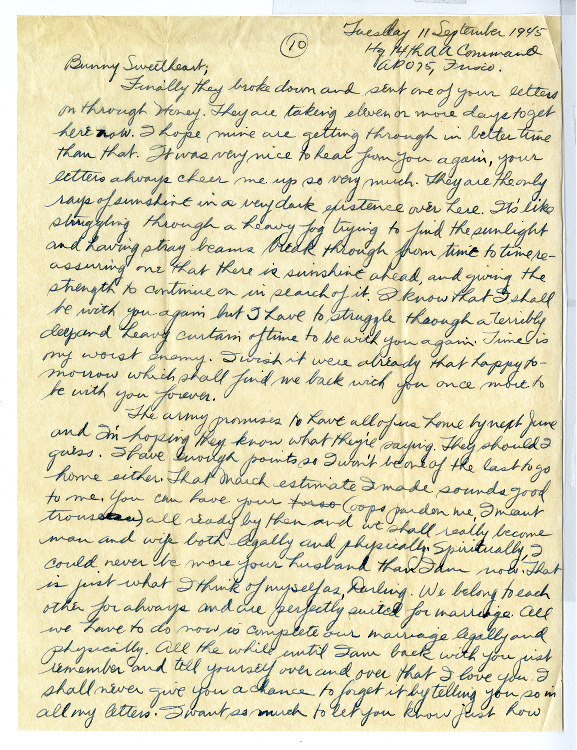 Tuesday 11 September 1945
10
Hq 14th AA Command
APO 75, Frisco.
Bunny Sweetheart,
Finally they broke down and sent one of your letters
on through Honey. They are taking eleven or more days to get
here now. I hope mine are getting through in better time
than that. It was very nice to hear from you again, your
letters always cheer me up so very much. They are the only
rays of sunshine in a very dark existence over here. It's like
struggling through a heavy fog trying to find the sunlight
and having stray beams break through from time to time re-
assuring one that there is sunshine ahead, and giving the
strength to continue on in search of it. I know that I shall
be with you again but I have to struggle through a terribly
deep and heavy curtain of time to be with you again. Time is
my worst enemy. I wish it were already that happy to-
morrow which shall find me back with you once more to
be with you forever.
The army promises to have all of us home by next June
and I'm hoping they know what they're saying. They should I
guess. I have enough points so I won't be one of the last to go
home either. That March estimate I made, sounds good
to me. You can have your torso (oops pardon me, I meant
trousseau) all ready by then and we shall really become
man and wife both legally and physically. Spiritually, I
could never be more your husband than I am now. That
is just what I think of myself as, Darling. We belong to each
other for always and are perfectly suited for marriage. All
we have to do now is complete our marriage legally and
physically. All the while until I am back with you just
remember and tell yourself over and over that I love you. I
shall never give you a chance to forget it by telling you so in
all my letters. I want so much to let you know just how